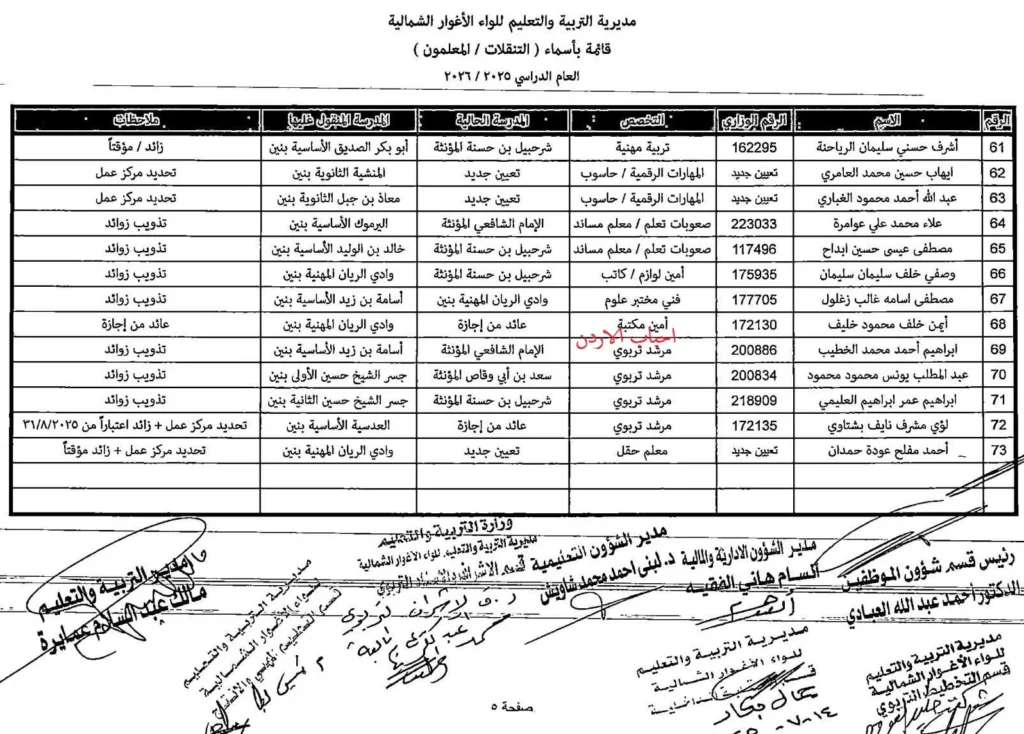 مديرية التربية والتعليم للواء الأغوار الشمالية
قائمة بأسماء ( التنقلات / المعلمون )
العام الدراسي ٢٠٢٥ / ٢٠٢٦
الرقم الاسم الرقم الوزاري التخصص المدرسة الحالية المدرسة المنقول عليها ملاحظات
61 أشرف حسني سليمان الرياحنة 162295 تربية مهنية شرحبيل بن حسنة المؤنثة أبو بكر الصديق الأساسية بنين زائد / مؤقتاً
62 ايهاب حسين محمد العامري تعيين جديد المهارات الرقمية / حاسوب تعيين جديد المنشية الثانوية بنين تحديد مركز عمل
63 عبد الله أحمد محمود الغباري تعيين جديد المهارات الرقمية / حاسوب تعيين جديد معاذ بن جبل الثانوية بنين تحديد مركز عمل
64 علاء محمد علي عوامرة 223033 صعوبات تعلم / معلم مساند الإمام الشافعي المؤنثة اليرموك الأساسية بنين تذويب زوائد
65 مصطفى عيسى حسين ابداح 117496 صعوبات تعلم / معلم مساند شرحبيل بن حسنة المؤنثة خالد بن الوليد الأساسية بنين تذويب زوائد
66 وصفي خلف سليمان سليمان 175935 أمين لوازم / كاتب شرحبيل بن حسنة المؤنثة وادي الريان المهنية بنين تذويب زوائد
67 مصطفى اسامه غالب زغلول 177705 فني مختبر علوم وادي الريان المهنية بنين أسامة بن زيد الأساسية بنين تذويب زوائد
68 أيمن خلف محمود خليف 172130 أمين مكتبة عائد من إجازة وادي الريان المهنية بنين عائد من إجازة
احباب الاردن
69 ابراهيم أحمد محمد الخطيب 200886 مرشد تربوي الإمام الشافعي المؤنثة أسامة بن زيد الأساسية بنين تذويب زوائد
70 عبد المطلب يونس محمود محمود 200834 مرشد تربوي سعد بن أبي وقاص المؤنثة جسر الشيخ حسين الأولى بنين تذويب زوائد
71 ابراهيم عمر ابراهيم العليمي 218909 مرشد تربوي شرحبيل بن حسنة المؤنثة جسر الشيخ حسين الثانية بنين تذويب زوائد
72 لؤي مشرف نايف بشتاوي 172135 مرشد تربوي عائد من إجازة العدسية الأساسية بنين تحديد مركز عمل + زائد اعتباراً من ٣١/٨/٢٠٢٥
73 أحمد مفلح عودة حمدان تعيين جديد معلم حقل تعيين جديد وادي الريان المهنية بنين تحديد مركز عمل + زائد مؤقتاً
رئيس قسم شؤون الموظفين
الدكتور أحمد عبد الله العبادي
مدير الشؤون الادارية والمالية
هاني الفقيه
مدير الشؤون التعليمية
د. لبنى احمد محمد شاويش
وزارة التربية والتعليم
مديرية التربية والتعليم للواء الأغوار الشمالية
مدير التربية والتعليم
مالك عبد السلام عبابرة
مديرية التربية والتعليم
للواء الأغوار الشمالية
مديرية التربية والتعليم
للواء الأغوار الشمالية
مديرية التربية والتعليم
للواء الأغوار الشمالية
قسم التخطيط التربوي
صفحة ٥